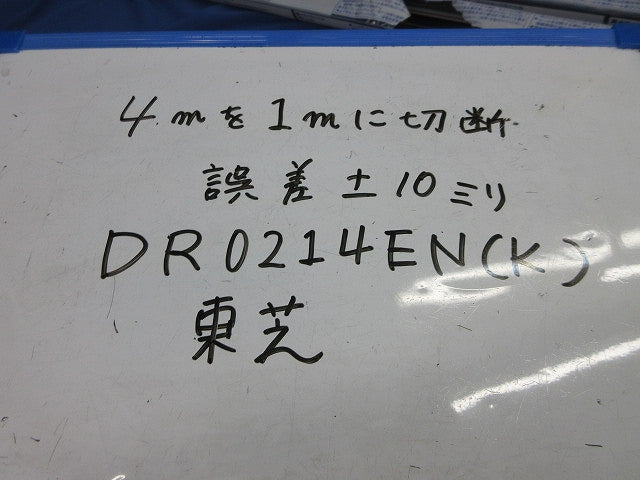 4mを1mに切断
誤差±10ミリ
DR0214EN(K)
東芝